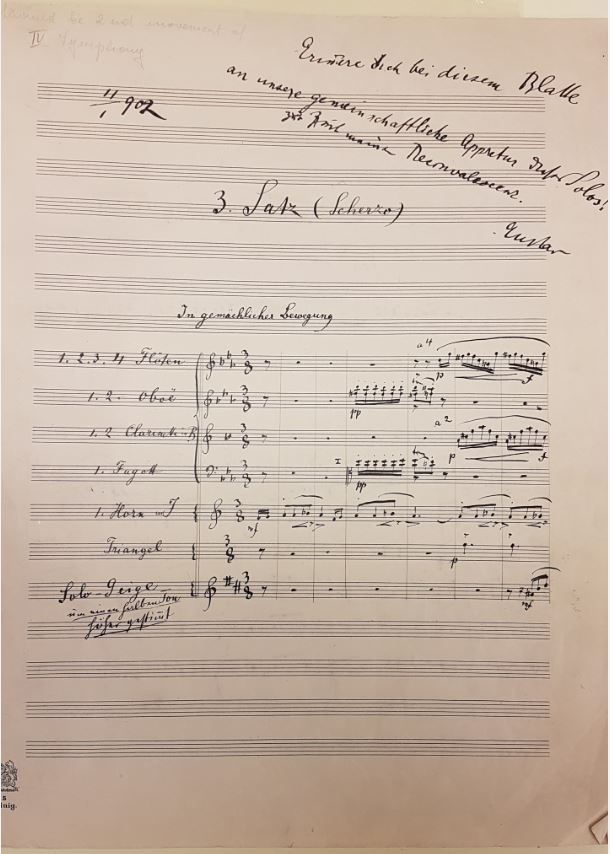 Should be 2nd movement of
IV Symphony
Erinnere Dich bei diesem Blatte
an unsere gemeinschaftliche Appretur dieses Solos!
zur Zeit meiner Reconvalescenz.
Gustav
11/1 902
3. Satz (Scherzo)
In gemächlicher Bewegung
a 4
1. 2. 3. 4 Flöten
p f
1. 2. Oboë
pp
a 2
1. 2 Clarinette in B
p f
I
1. Fagott
pp
1. Horn in F
mf
Triangel
p
Solo-Geige
mf
um einen halben Ton
höher gestimmt